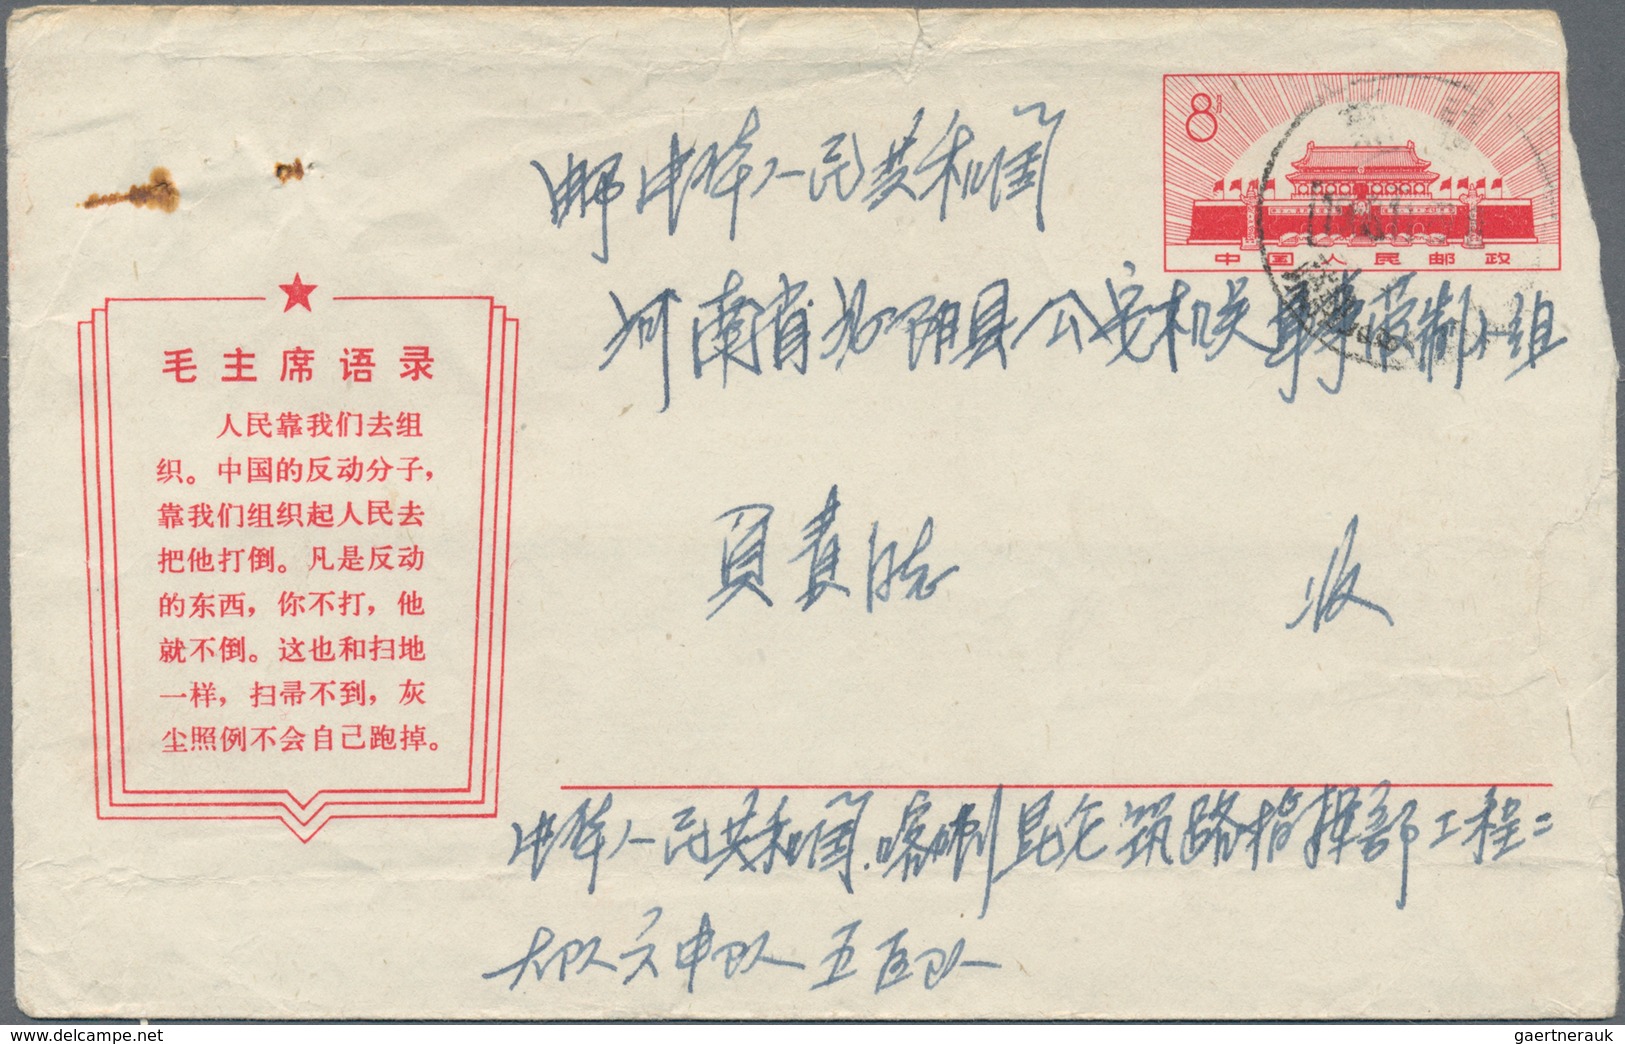 8分
中国人民邮政
邮中华人民共和国
河南省沁阳县公安机关军事管制小组
负责同志 收
毛主席语录
人民靠我们去组
织。中国的反动分子,
靠我们组织起人民去
把他打倒。凡是反动
的东西,你不打,他
就不倒。这也和扫地
一样,扫帚不到,灰
尘照例不会自己跑掉。
中华人民共和国.喀喇昆仑筑路指挥部工程二
大队六中队五区队
www.delcampe.net
gaertnerauk